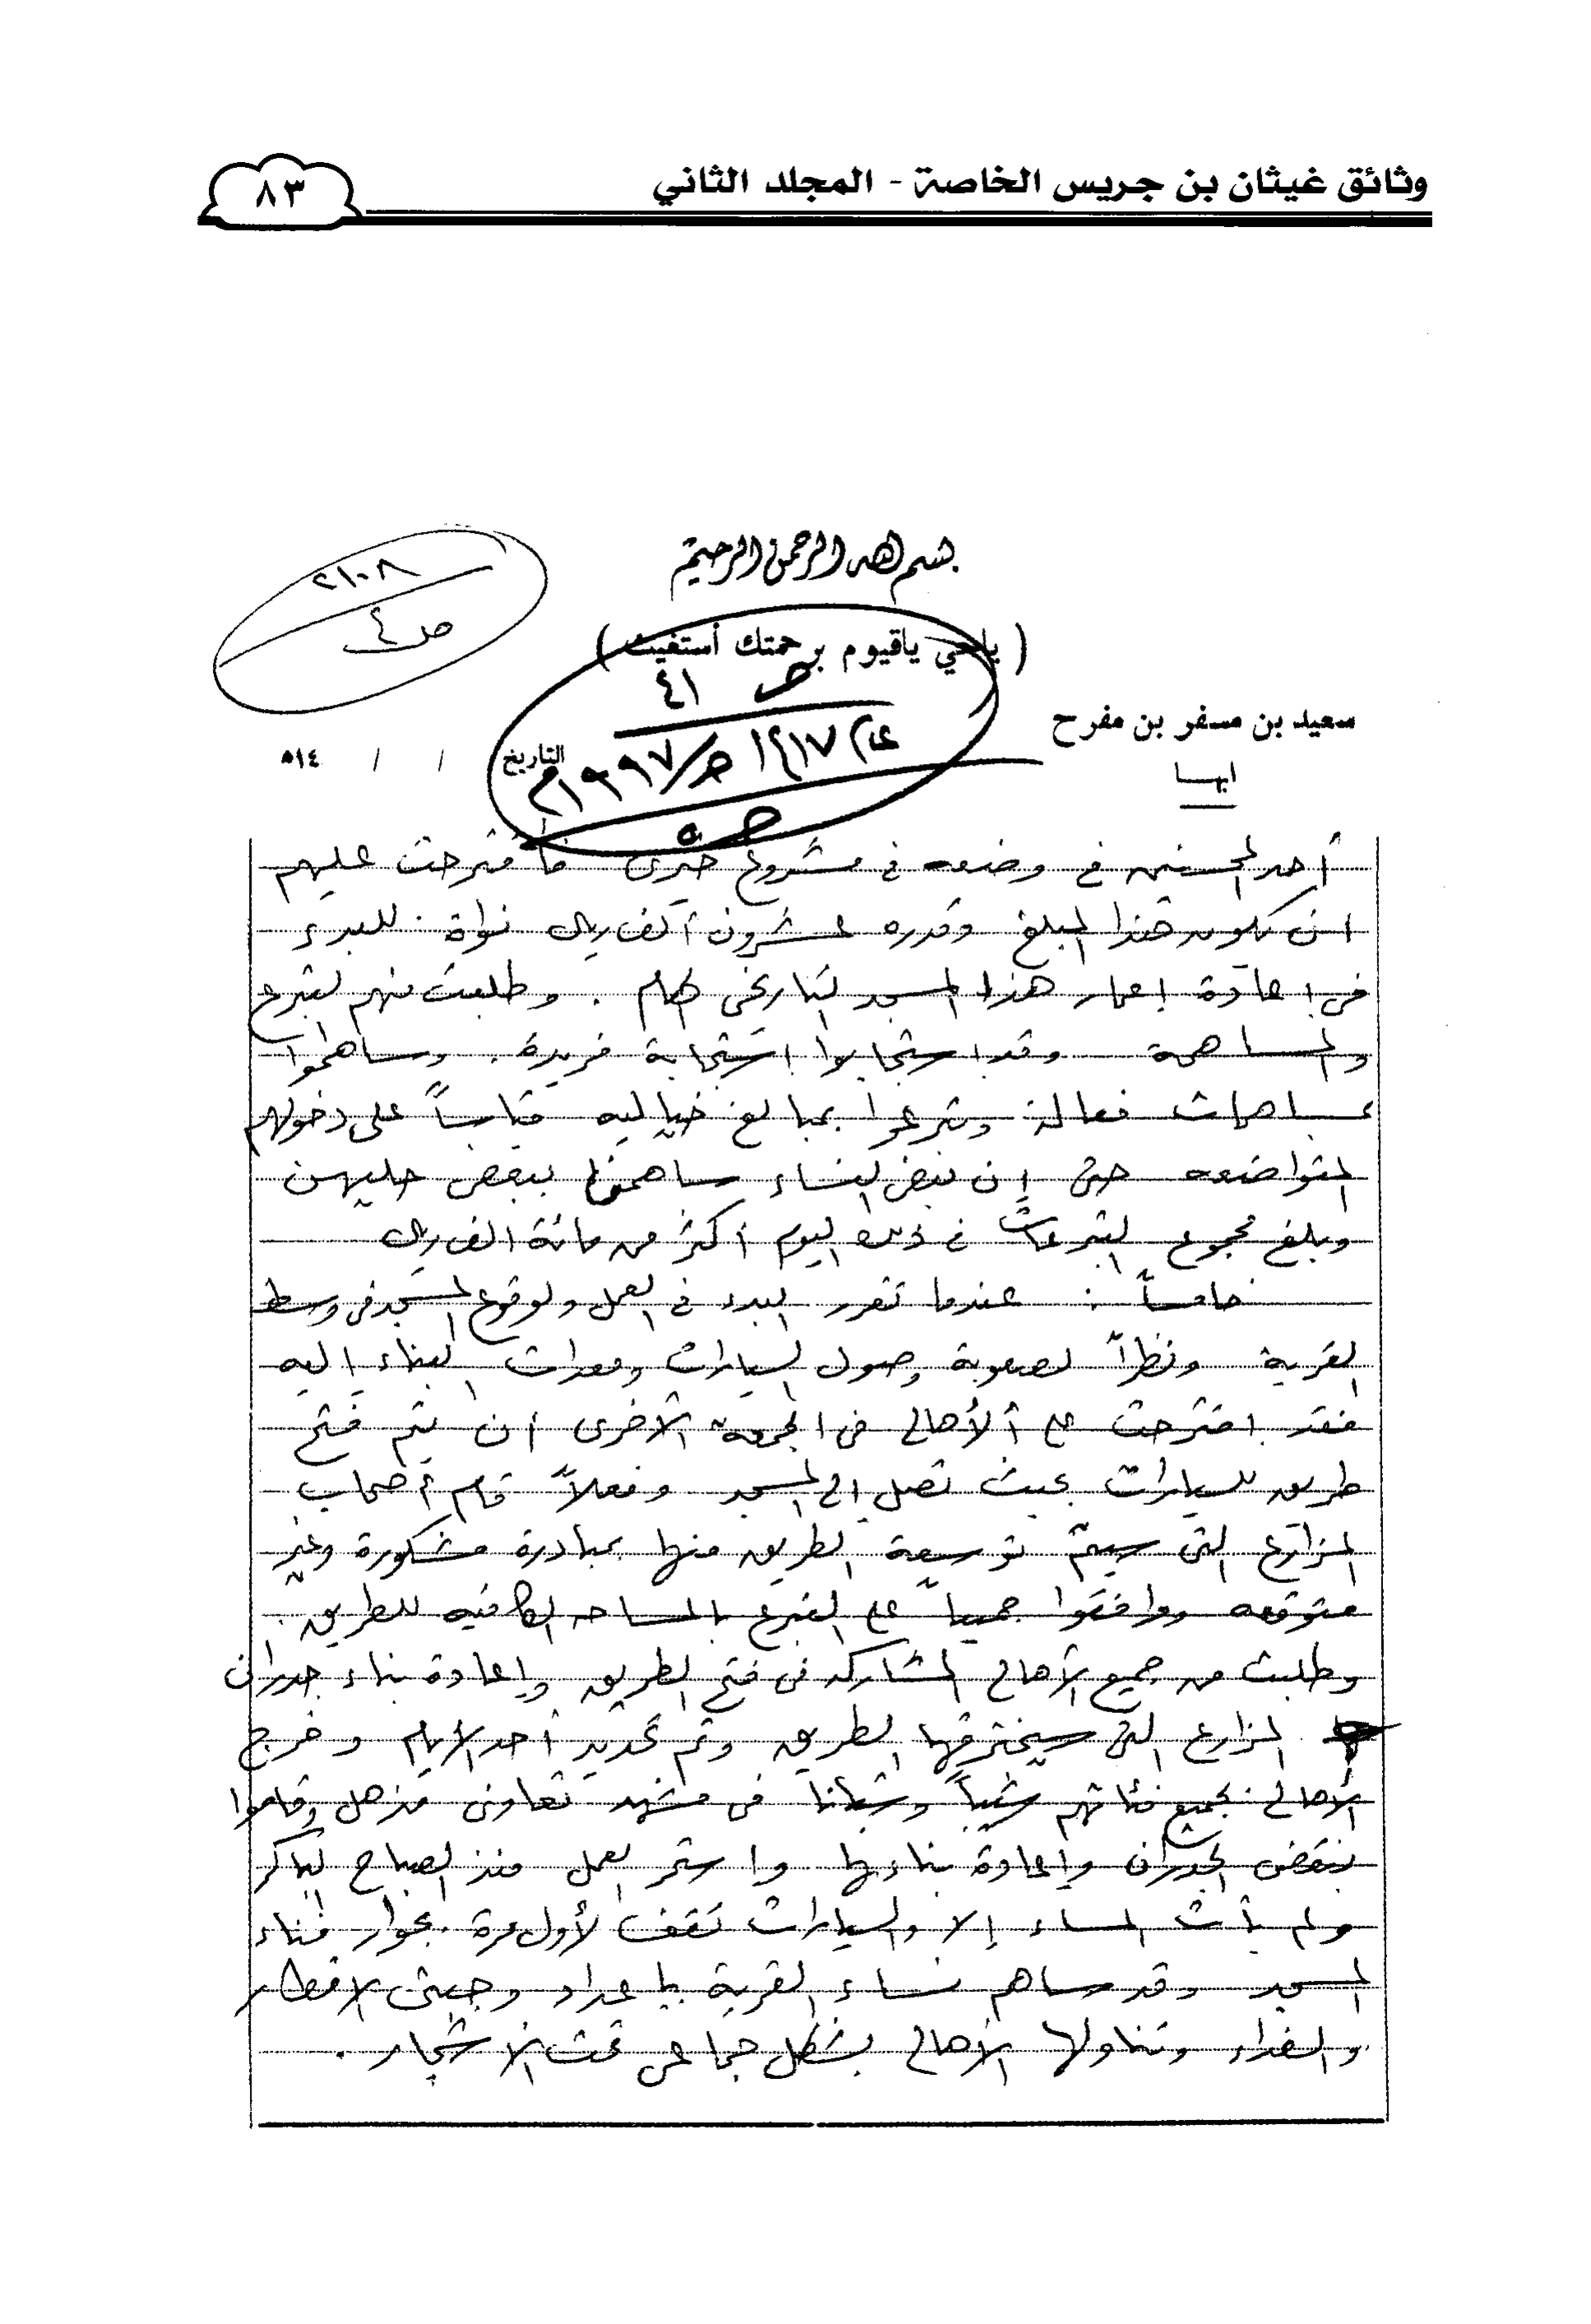 وثائق غيثان بن جريس الخاصة - المجلد الثاني
٨٣
بسم الله الرحمن الرحيم
٢١٠٠٨
ص٤
(ياحي ياقيوم برحمتك أستغيث)
ص ٤١
سعيد بن مسفر بن مفرح
عام ١٤١٧هـ/١٩٩٧م
التاريخ / / ١٤هـ
ابها
ص٥
أحد المحسنين في وضعه في مشروع خيري فاقترحت عليهم
ان يكون هذا المبلغ وقدره عشرون ألف ريال نواة للبدء
في إعادة إعمار هذا المسجد التاريخي الهام . وطلبت منهم التبرع
والمساهمة وقد استجابوا استجابة فريدة . وساهموا
مساهمات فعالة وتبرعوا بمبالغ خياليه قياساً على دخولهم
المتواضعه حتى إن بعض النساء ساهمن ببعض حليهن
وبلغ مجموع التبرعات في ذلك اليوم أكثر من مائة الف ريال
خامساً : عندما تقرر البدء في العمل ولوقوع المسجد في وسط
القرية ونظراً لصعوبة وصول السيارات ومعدات البناء إليه
فقد اقترحت على الأهالي في الجمعة الأخرى أن يتم فتح
طريق للسيارات بحيث تصل الى المسجد وفعلاً قام أصحاب
المزارع التي سيتم توسعة الطريق منها بمبادرة مشكورة وغير
متوقعه ووافقوا جميعاً على التبرع بالمساحه الكافيه للطريق .
وطلبت من جميع الأهالي المشاركه في فتح الطريق وإعادة بناء جدران
المزارع التي سيخترقها الطريق وتم تحديد أحد الأيام وخرج
الأهالي بجميع فئاتهم شيباً وشبانا في مشهد تعاوني مذهل وقاموا
بنقض الجدران وإعادة بناءها واستمر العمل منذ الصباح الباكر
ولم يأت المساء إلا والسيارات تقف لأول مرة بجوار فناء
المسجد وقد ساهم نساء القرية بإعداد وجبتي الافطار
والغداء وتناولها الأهالي بشكل جماعي تحت الأشجار .